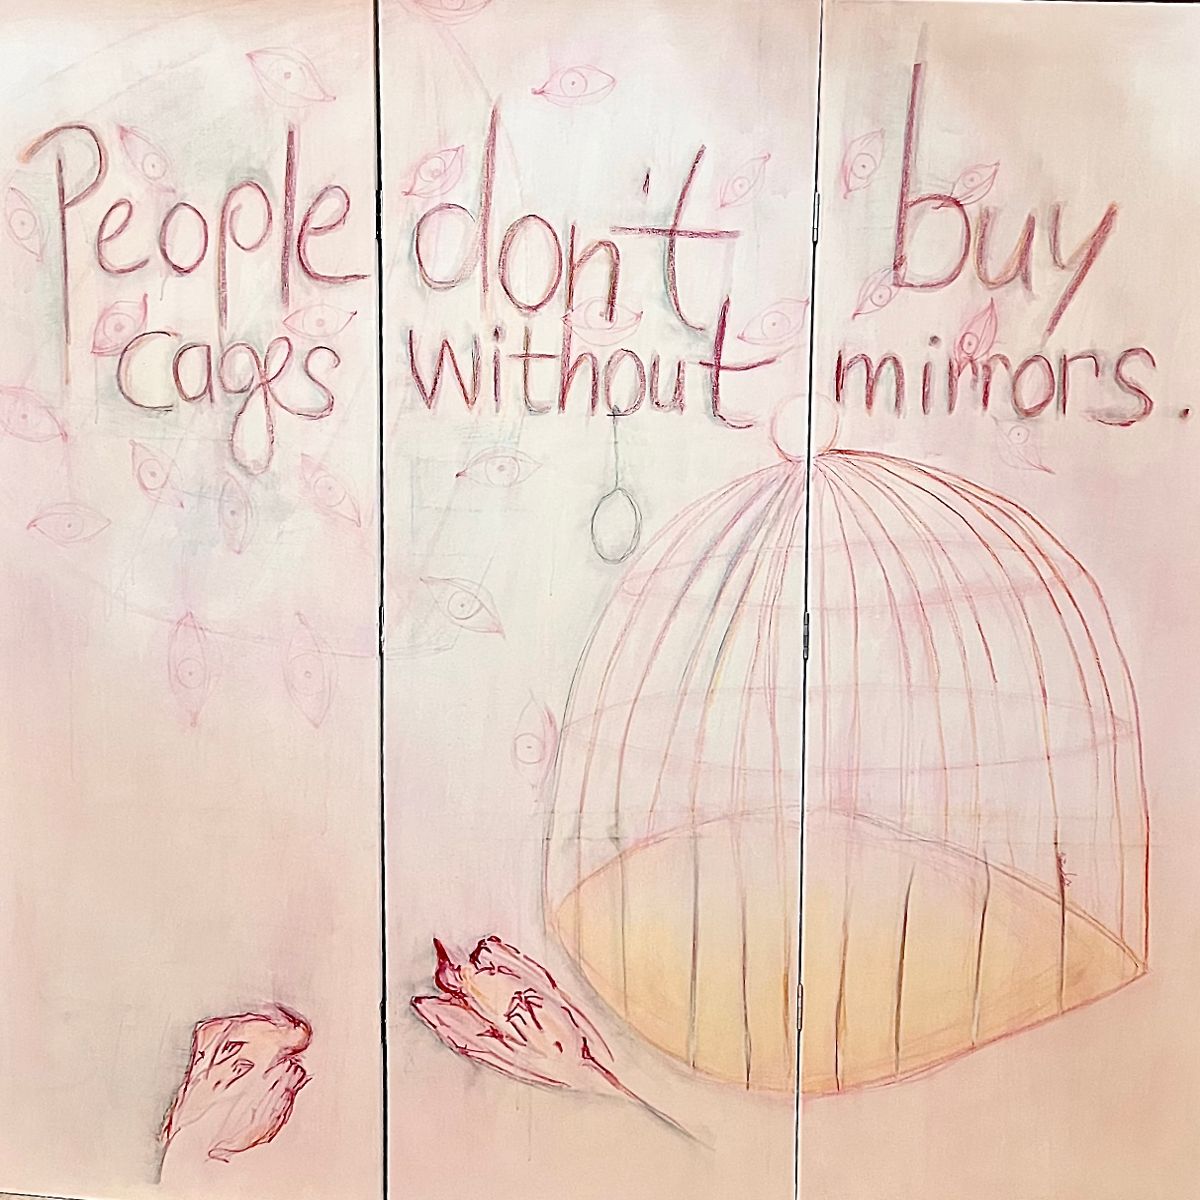 People don't buy
cages without mirrors.